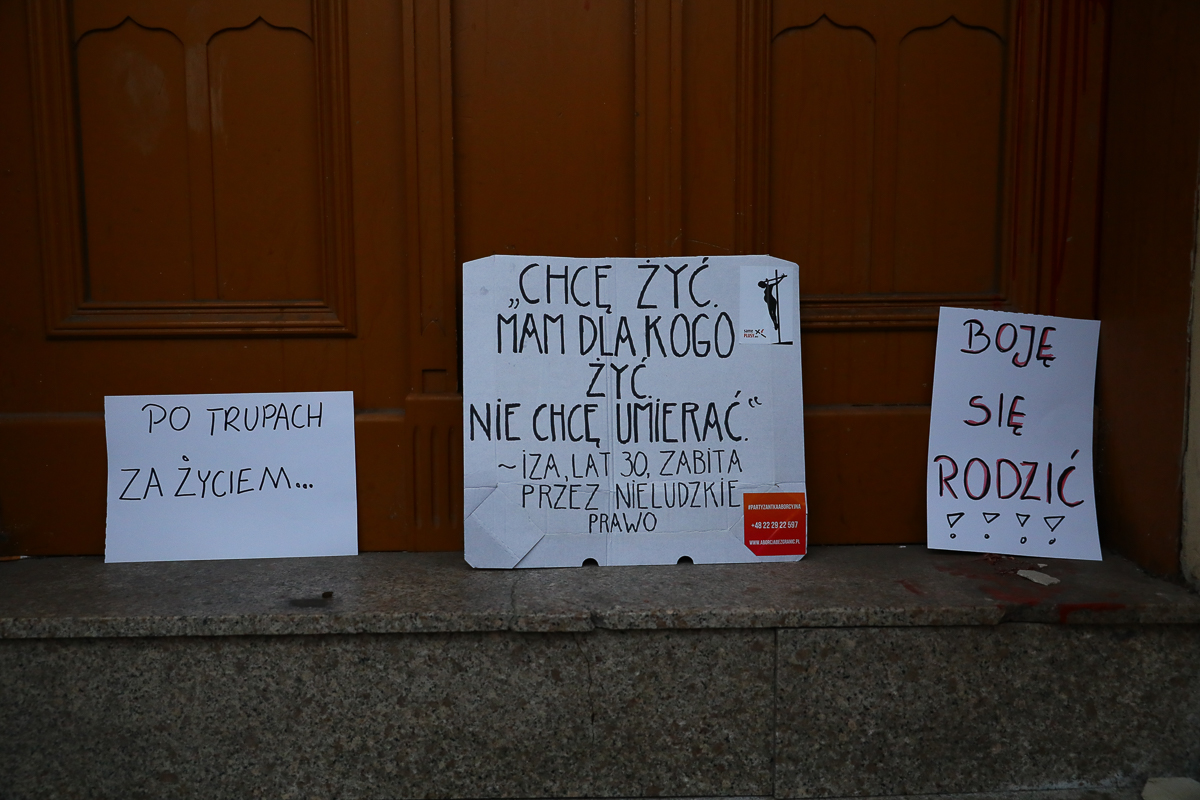 PO TRUPACH
ZA ŻYCIEM...
„CHCĘ ŻYĆ.
MAM DLA KOGO
ŻYĆ.
NIE CHCĘ UMIERAĆ.“
~IZA, LAT 30, ZABITA
PRZEZ NIELUDZKIE
PRAWO
#PARTYZANTKAABORCYJNA
+48 22 29 22 597
WWW.ABORCJABEZGRANIC.PL
BOJĘ
SIĘ
RODZIĆ
! ! ! !